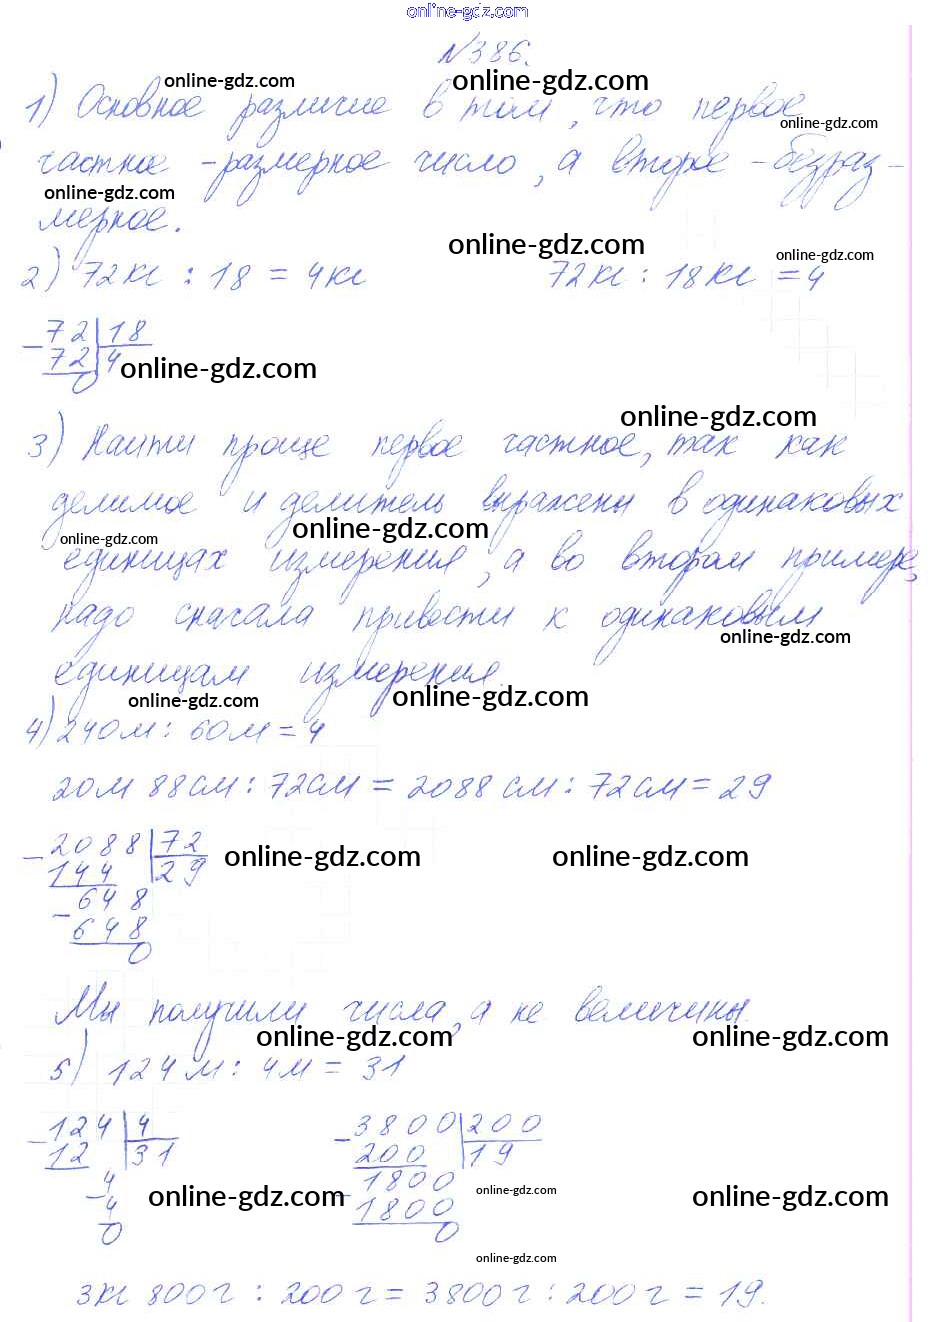 online-gdz.com
№386.
online-gdz.com online-gdz.com
1) Основное различие в том, что первое
online-gdz.com
частное - размерное число, а второе - безраз-
online-gdz.com
мерное.
online-gdz.com online-gdz.com
2) 72кг : 18 = 4кг 72кг : 18кг = 4
- 72 18
72 4
0
online-gdz.com
online-gdz.com
3) Найти проще первое частное, так как
делимое и делитель выражены в одинаковых
online-gdz.com online-gdz.com
единицах измерения, а во втором примере,
надо сначала привести к одинаковым
online-gdz.com
единицам измерения.
online-gdz.com online-gdz.com
4) 240м : 60м = 4
20м 88см : 72см = 2088см : 72см = 29
- 2088 72
144 29
online-gdz.com online-gdz.com
- 648
648
0
Мы получили числа, а не величины.
online-gdz.com online-gdz.com
5) 124м : 4м = 31
- 124 4 - 3800 200
12 31 200 19
- 4 - 1800
4 1800
0 0
online-gdz.com online-gdz.com online-gdz.com
online-gdz.com
3кг 800г : 200г = 3800г : 200г = 19.